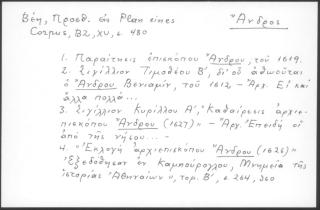 Βέη, Προσθ. εἰς Plan eines
Corpus, BZ, XV, σ. 480
Ἄνδρος
1. Παραίτησις ἐπισκόπου Ἄνδρου, τοῦ 1619.
2. Σιγίλλιον Τιμοθέου Β', δι' οὗ ἀθωοῦται
ὁ Ἄνδρου Βενιαμίν, τοῦ 1612 – Ἀρχ. Εἰ καὶ
ἄλλα πολλά...
3. Σιγίλλιον Κυρίλλου Α', "Καθαίρεσις ἀρχιε-
πισκόπου Ἄνδρου (1627)" – Ἀρχ. Ἐπειδὴ οἱ
ἀπὸ τῆς νήσου... –
4. "Ἐκλογὴ ἀρχιεπισκόπου Ἄνδρου (1626)"
Ἐξεδόθησαν ἐν Καμπούρογλου, Μνημεῖα τῆς
ἱστορίας Ἀθηναίων", τομ. Β', σ. 264, 360